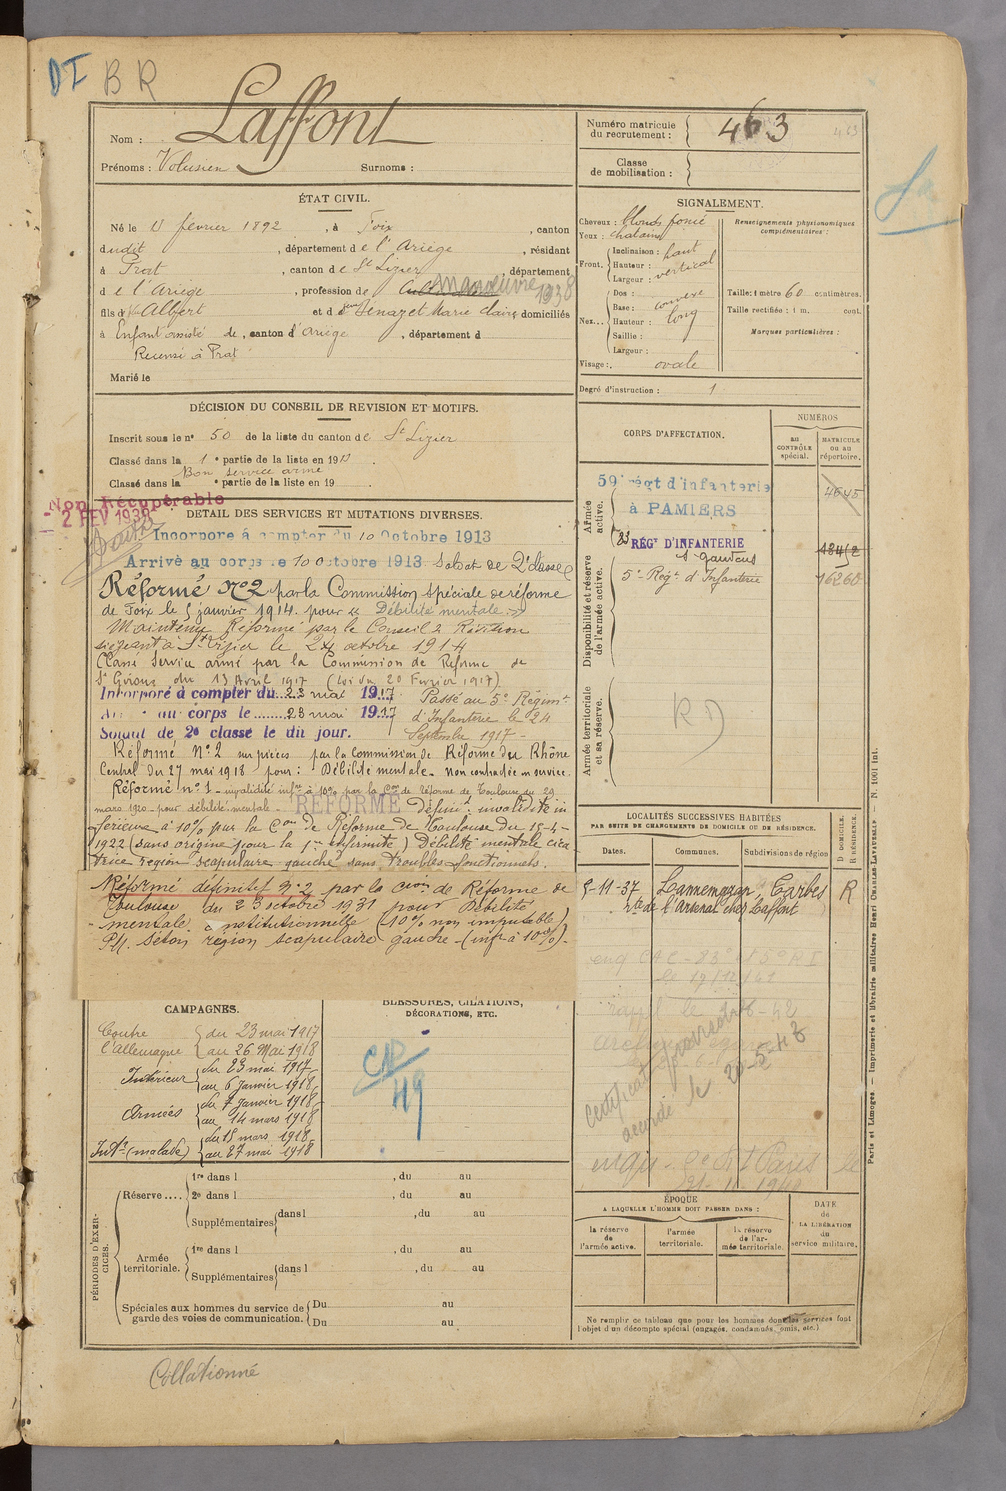 DI BR
Nom : Laffont
Prénoms : Volusien Surnoms :
Numéro matricule du recrutement : 463
463
Classe de mobilisation :
ÉTAT CIVIL.
Né le février 1892, à Foix, canton
dudit, département de l'Ariège, résidant
à Prat, canton de St Lizier, département
de l'Ariège, profession de manœuvre 1938
fils d Albert et de Marie Claire domiciliés
à Enfant assisté de, canton d'Ariège, département d
Recensé à Prat
Marié le
SIGNALEMENT.
Cheveux : blonds foncé
Yeux : chatains
Front. Inclinaison : haut
Hauteur : vertical
Largeur :
Nez... Dos : convexe
Base :
Hauteur : long
Saillie :
Largeur :
Visage : ovale
Renseignements physionomiques complémentaires :
Taille : 1 mètre 60 centimètres.
Taille rectifiée : 1 m. cent.
Marques particulières :
Degré d'instruction : 1
DÉCISION DU CONSEIL DE REVISION ET MOTIFS.
Inscrit sous le n° 50 de la liste du canton de St Lizier
Classé dans la 1e partie de la liste en 1913
Bon service armé
Classé dans la e partie de la liste en 19
Non Récupérable
- 2 FEV 1938
DÉTAIL DES SERVICES ET MUTATIONS DIVERSES.
Incorporé à compter du 10 Octobre 1913
Arrivé au corps le 10 octobre 1913 soldat de 2e classe
Réformé N°2 par la Commission spéciale de réforme
de Foix le 5 janvier 1914 pour "Débilité mentale"
Maintenu Réformé par le Conseil de Révision
siégeant à St Lizier le 24 octobre 1914
Classé service armé par la Commission de Réforme de
St Girons du 13 Avril 1917 (Loi du 20 Février 1917)
Incorporé à compter du 23 mai 1917. Passé au 5e Régiment
au corps le 23 mai 1917 d'Infanterie le 24
Soldat de 2e classe le dit jour. Septembre 1917 -
Réformé N°2 sur pièces par la Commission de Réforme du Rhône
Central du 27 mai 1918 pour : Débilité mentale. Non contractée en service.
Réformé n°1 - invalidité infre à 10% par la Con de réforme de Toulouse du 29
mars 1920 - pour débilité mentale - RÉFORMÉ Définit. invalidité in
férieure à 10% par la Con de Réforme de Toulouse du 15-4-
1922 (sans origine pour la 1re infirmité) Débilité mentale cica
trice région scapulaire gauche sans troubles fonctionnels.
Réformé définitif N°2 par la Cion de Réforme de
Toulouse du 23 octobre 1931 pour Débilité
mentale constitutionnelle (10% non imputable)
P/. Séton région scapulaire gauche - (infr à 10%) -
CORPS D'AFFECTATION.
NUMÉROS
AU CONTRÔLE spécial.
MATRICULE OU AU répertoire.
Armée active.
59e régt d'infanterie
à PAMIERS
4645
83 RÉGt D'INFANTERIE
St Gaudens
Disponibilité et réserve de l'armée active.
5e Régt d'Infanterie
16260
Armée territoriale et sa réserve.
RD
LOCALITÉS SUCCESSIVES HABITÉES
PAR SUITE DE CHANGEMENTS DE DOMICILE OU DE RÉSIDENCE.
Dates. Communes. Subdivisions de région
D. DOMICILE. R. RÉSIDENCE.
5-11-37 Lannemezan, Tarbes R
rte de l'Arsenal chez Laffont
le 19/12/41
certificat
accordé le 20-5-43
CAMPAGNES.
Contre l'Allemagne du 23 mai 1917
au 26 Mai 1918
Intérieur du 23 mai 1917
au 6 Janvier 1918
Armées du 7 Janvier 1918
au 14 mars 1918
Intr (malade) du 15 mars 1918
au 27 mai 1918
BLESSURES, CITATIONS, DÉCORATIONS, ETC.
CR
49
PÉRIODES D'EXERCICES.
Réserve.... 1re dans l , du au
2e dans l , du au
Supplémentaires dans l , du au
Armée territoriale. 1re dans l , du au
Supplémentaires dans l , du au
Spéciales aux hommes du service de garde des voies de communication. Du au
Du au
ÉPOQUE
A LAQUELLE L'HOMME DOIT PASSER DANS :
la réserve de l'armée active.
l'armée territoriale.
la réserve de l'armée territoriale.
DATE de LA LIBÉRATION du service militaire.
Ne remplir ce tableau que pour les hommes dont les services font
l'objet d'un décompte spécial (engagés, condamnés, omis, etc.)
Paris et Limoges. — Imprimerie et librairie militaires Henri CHARLES-LAVAUZELLE. — N. 1001 int.
Collationné